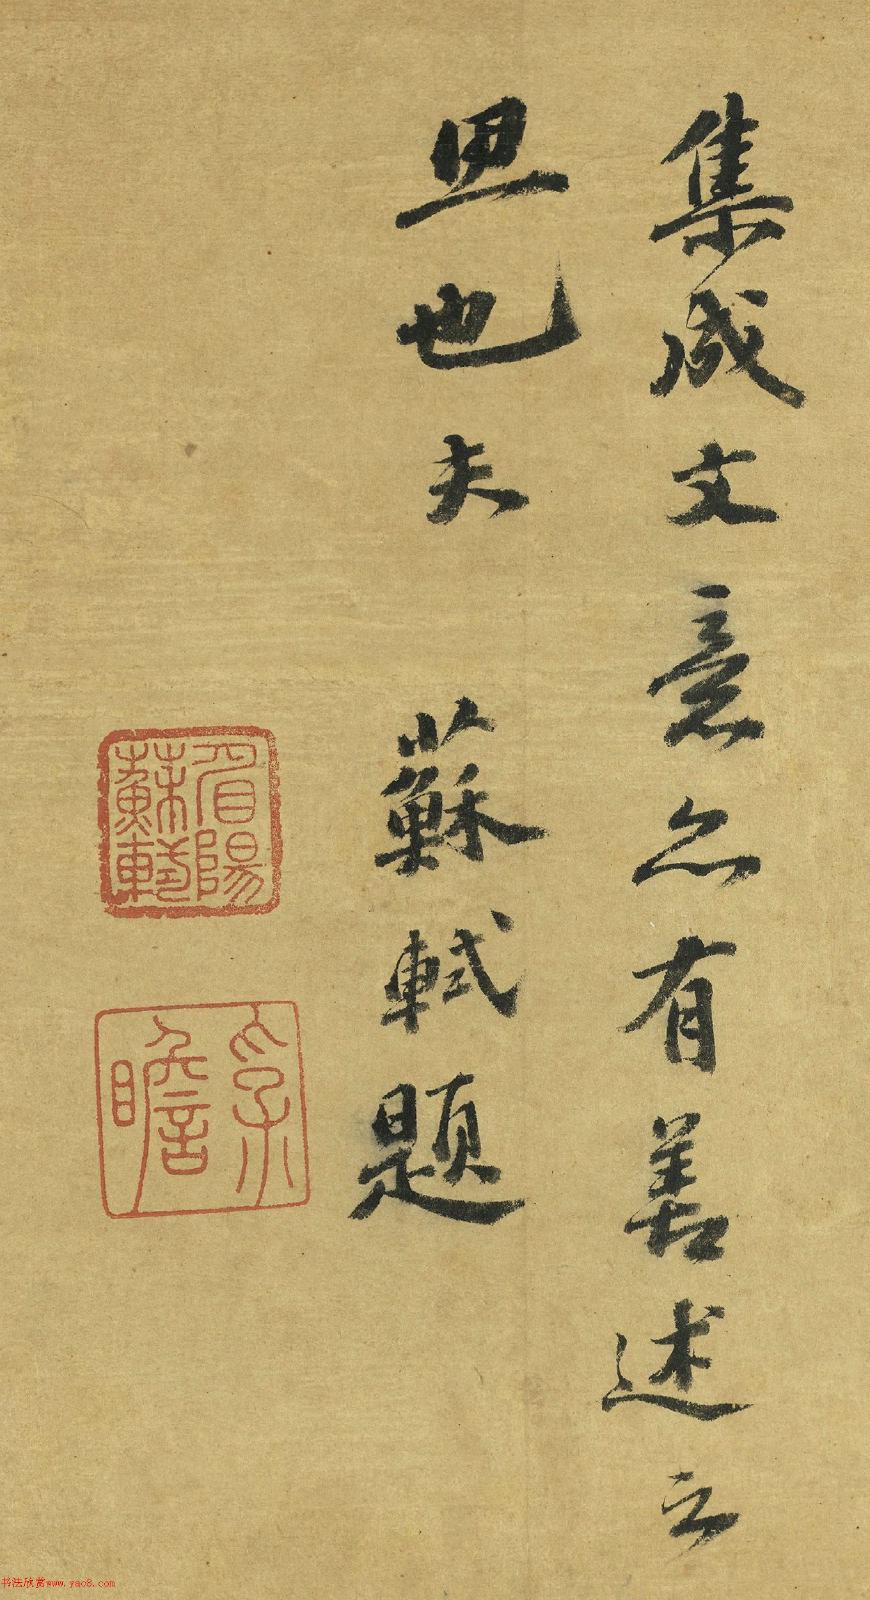 集成文意亦有善述之
思也夫 蘇軾題
眉陽
蘇軾
子瞻
书法欣赏www.yac8.com